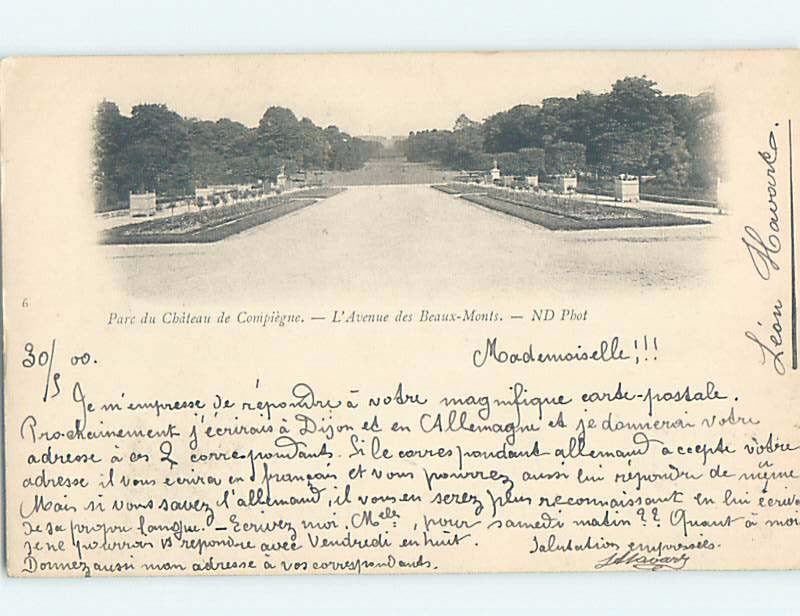 6
Parc du Château de Compiègne. — L'Avenue des Beaux-Monts. — ND Phot
Léon Havard.
30/5 00.
Mademoiselle!!!
Je m'empresse de répondre à votre magnifique carte-postale.
Prochainement j'écrirais à Dijon et en Allemagne et je donnerai votre
adresse à ces 2 correspondants. Si le correspondant allemand accepte vôtre
adresse il vous écrira en français et vous pourrez aussi lui répondre de même
Mais si vous savez l'allemand, il vous en serez plus reconnaissant en lui écriva
de sa propre langue. – Ecrivez moi, Melle, pour samedi matin?? Quant à moi
je ne pourrais vs répondre avec Vendredi en huit. Salutation empressées.
Donnez aussi mon adresse à vos correspondants. LHavard